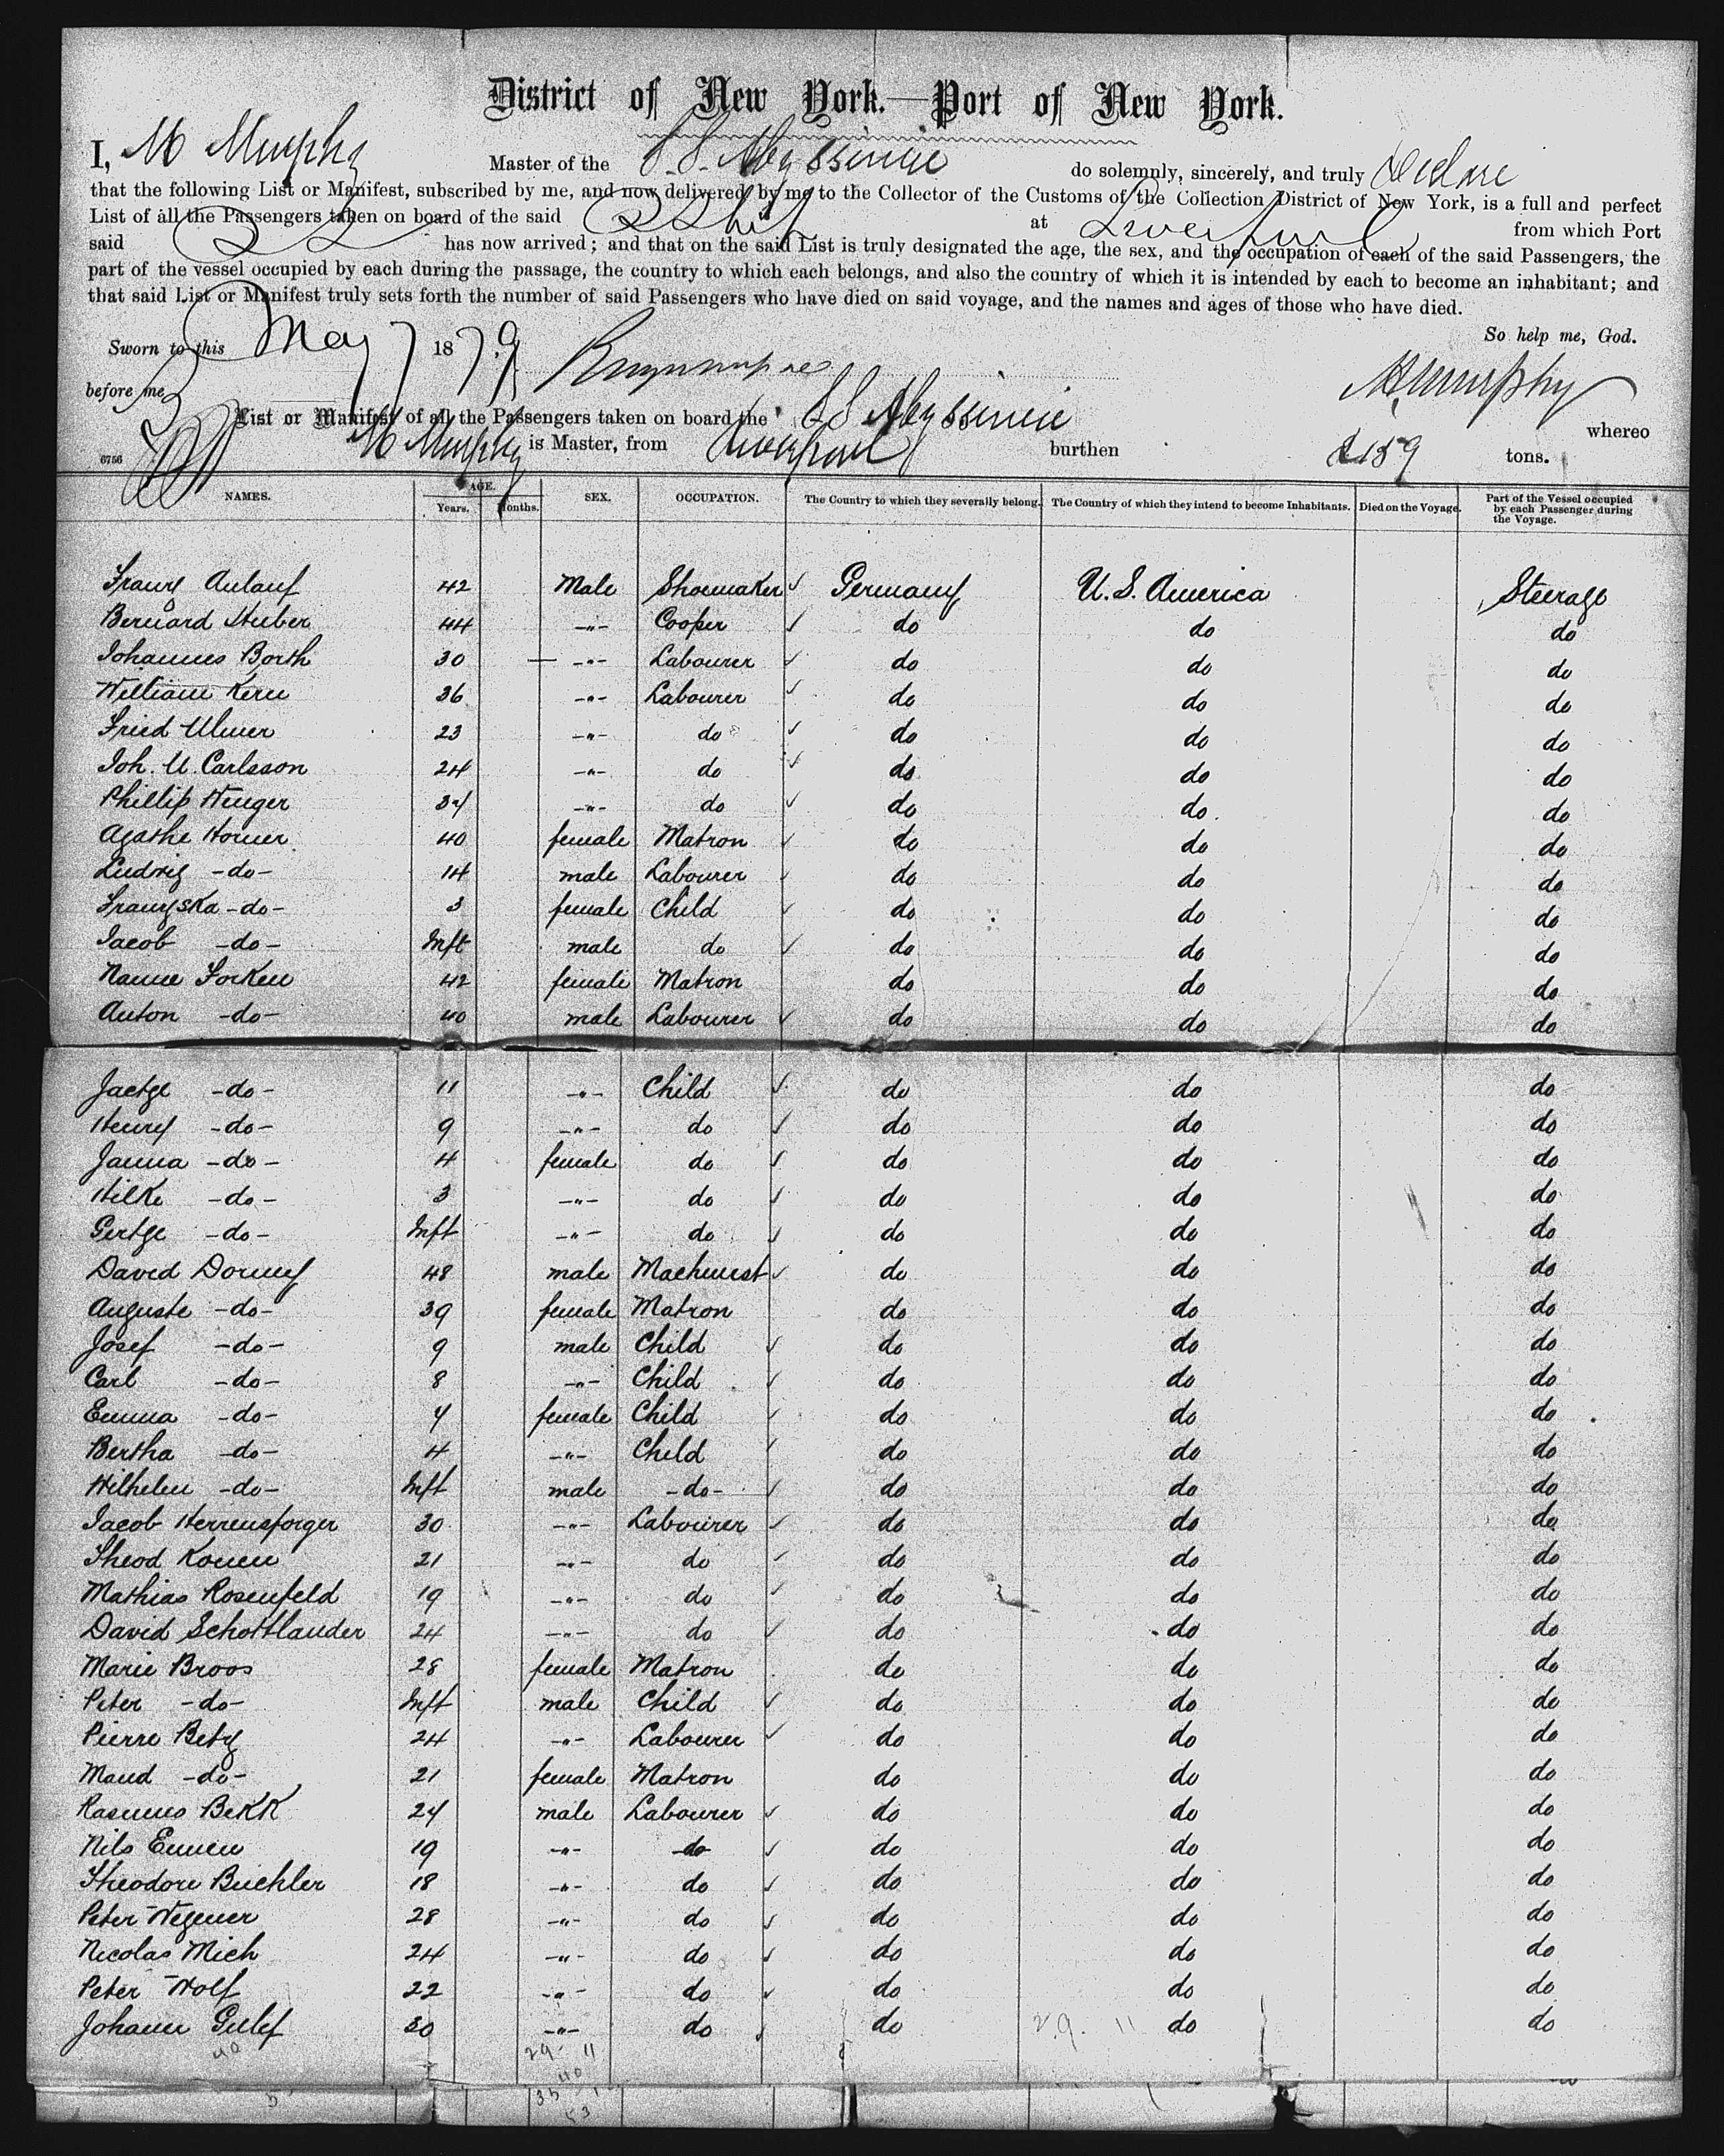 District of New York.—Port of New York.
I, M Murphy Master of the S.S. Abyssinia do solemnly, sincerely, and truly declare
that the following List or Manifest, subscribed by me, and now delivered by me to the Collector of the Customs of the Collection District of New York, is a full and perfect
List of all the Passengers taken on board of the said S Ship at Liverpool from which Port
said SS has now arrived; and that on the said List is truly designated the age, the sex, and the occupation of each of the said Passengers, the
part of the vessel occupied by each during the passage, the country to which each belongs, and also the country of which it is intended by each to become an inhabitant; and
that said List or Manifest truly sets forth the number of said Passengers who have died on said voyage, and the names and ages of those who have died.
So help me, God.
Sworn to this May 7 1879
before me M Murphy
List or Manifest of all the Passengers taken on board the SS Abyssinia whereo
6756 M Murphy is Master, from Liverpool burthen tons.
NAMES. AGE. Years. Months. SEX. OCCUPATION. The Country to which they severally belong. The Country of which they intend to become Inhabitants. Died on the Voyage. Part of the Vessel occupied by each Passenger during the Voyage.
Franz Anlauf 42 Male Shoemaker Germany U.S. America Steerage
Bernard Huber 44 -"- Cooper do do do
Johannes Borth 30 -"- Labourer do do do
William Kern 36 -"- Labourer do do do
Fried Ulmer 23 -"- do do do do
Joh. U. Carlsson 24 -"- do do do do
Phillip Wenger 37 -"- do do do do
Agathe Horner 40 female Matron do do do
Ludwig -do- 14 male Labourer do do do
Franzska -do- 3 female Child do do do
Jacob -do- Inft male do do do do
Nanne Focken 42 female Matron do do do
Anton -do- 40 male Labourer do do do
Jaetge -do- 11 -"- Child do do do
Henry -do- 9 -"- do do do do
Janna -do- 4 female do do do do
Hilke -do- 3 -"- do do do do
Gertge -do- Inft -"- do do do do
David Dorney 48 male Machinist do do do
Auguste -do- 39 female Matron do do do
Josef -do- 9 male Child do do do
Carl -do- 8 -"- Child do do do
Emma -do- 7 female Child do do do
Bertha -do- 4 -"- Child do do do
Wilhelm -do- Inft male -do- do do do
Jacob Herrensforger 30 -"- Labourer do do do
Theod Konen 21 -"- do do do do
Mathias Rosenfeld 19 -"- do do do do
David Schottlander 24 -"- do do do do
Marie Broos 28 female Matron do do do
Peter -do- Inft male Child do do do
Pierre Betz 24 -"- Labourer do do do
Maud -do- 21 female Matron do do do
Rasmus Bekk 27 male Labourer do do do
Nils Emmen 19 -"- do do do do
Theodore Buchler 18 -"- do do do do
Peter Wegener 28 -"- do do do do
Nicolas Mich 24 -"- do do do do
Peter Wolf 22 -"- do do do do
Johann 30 -"- do do do do
29 11